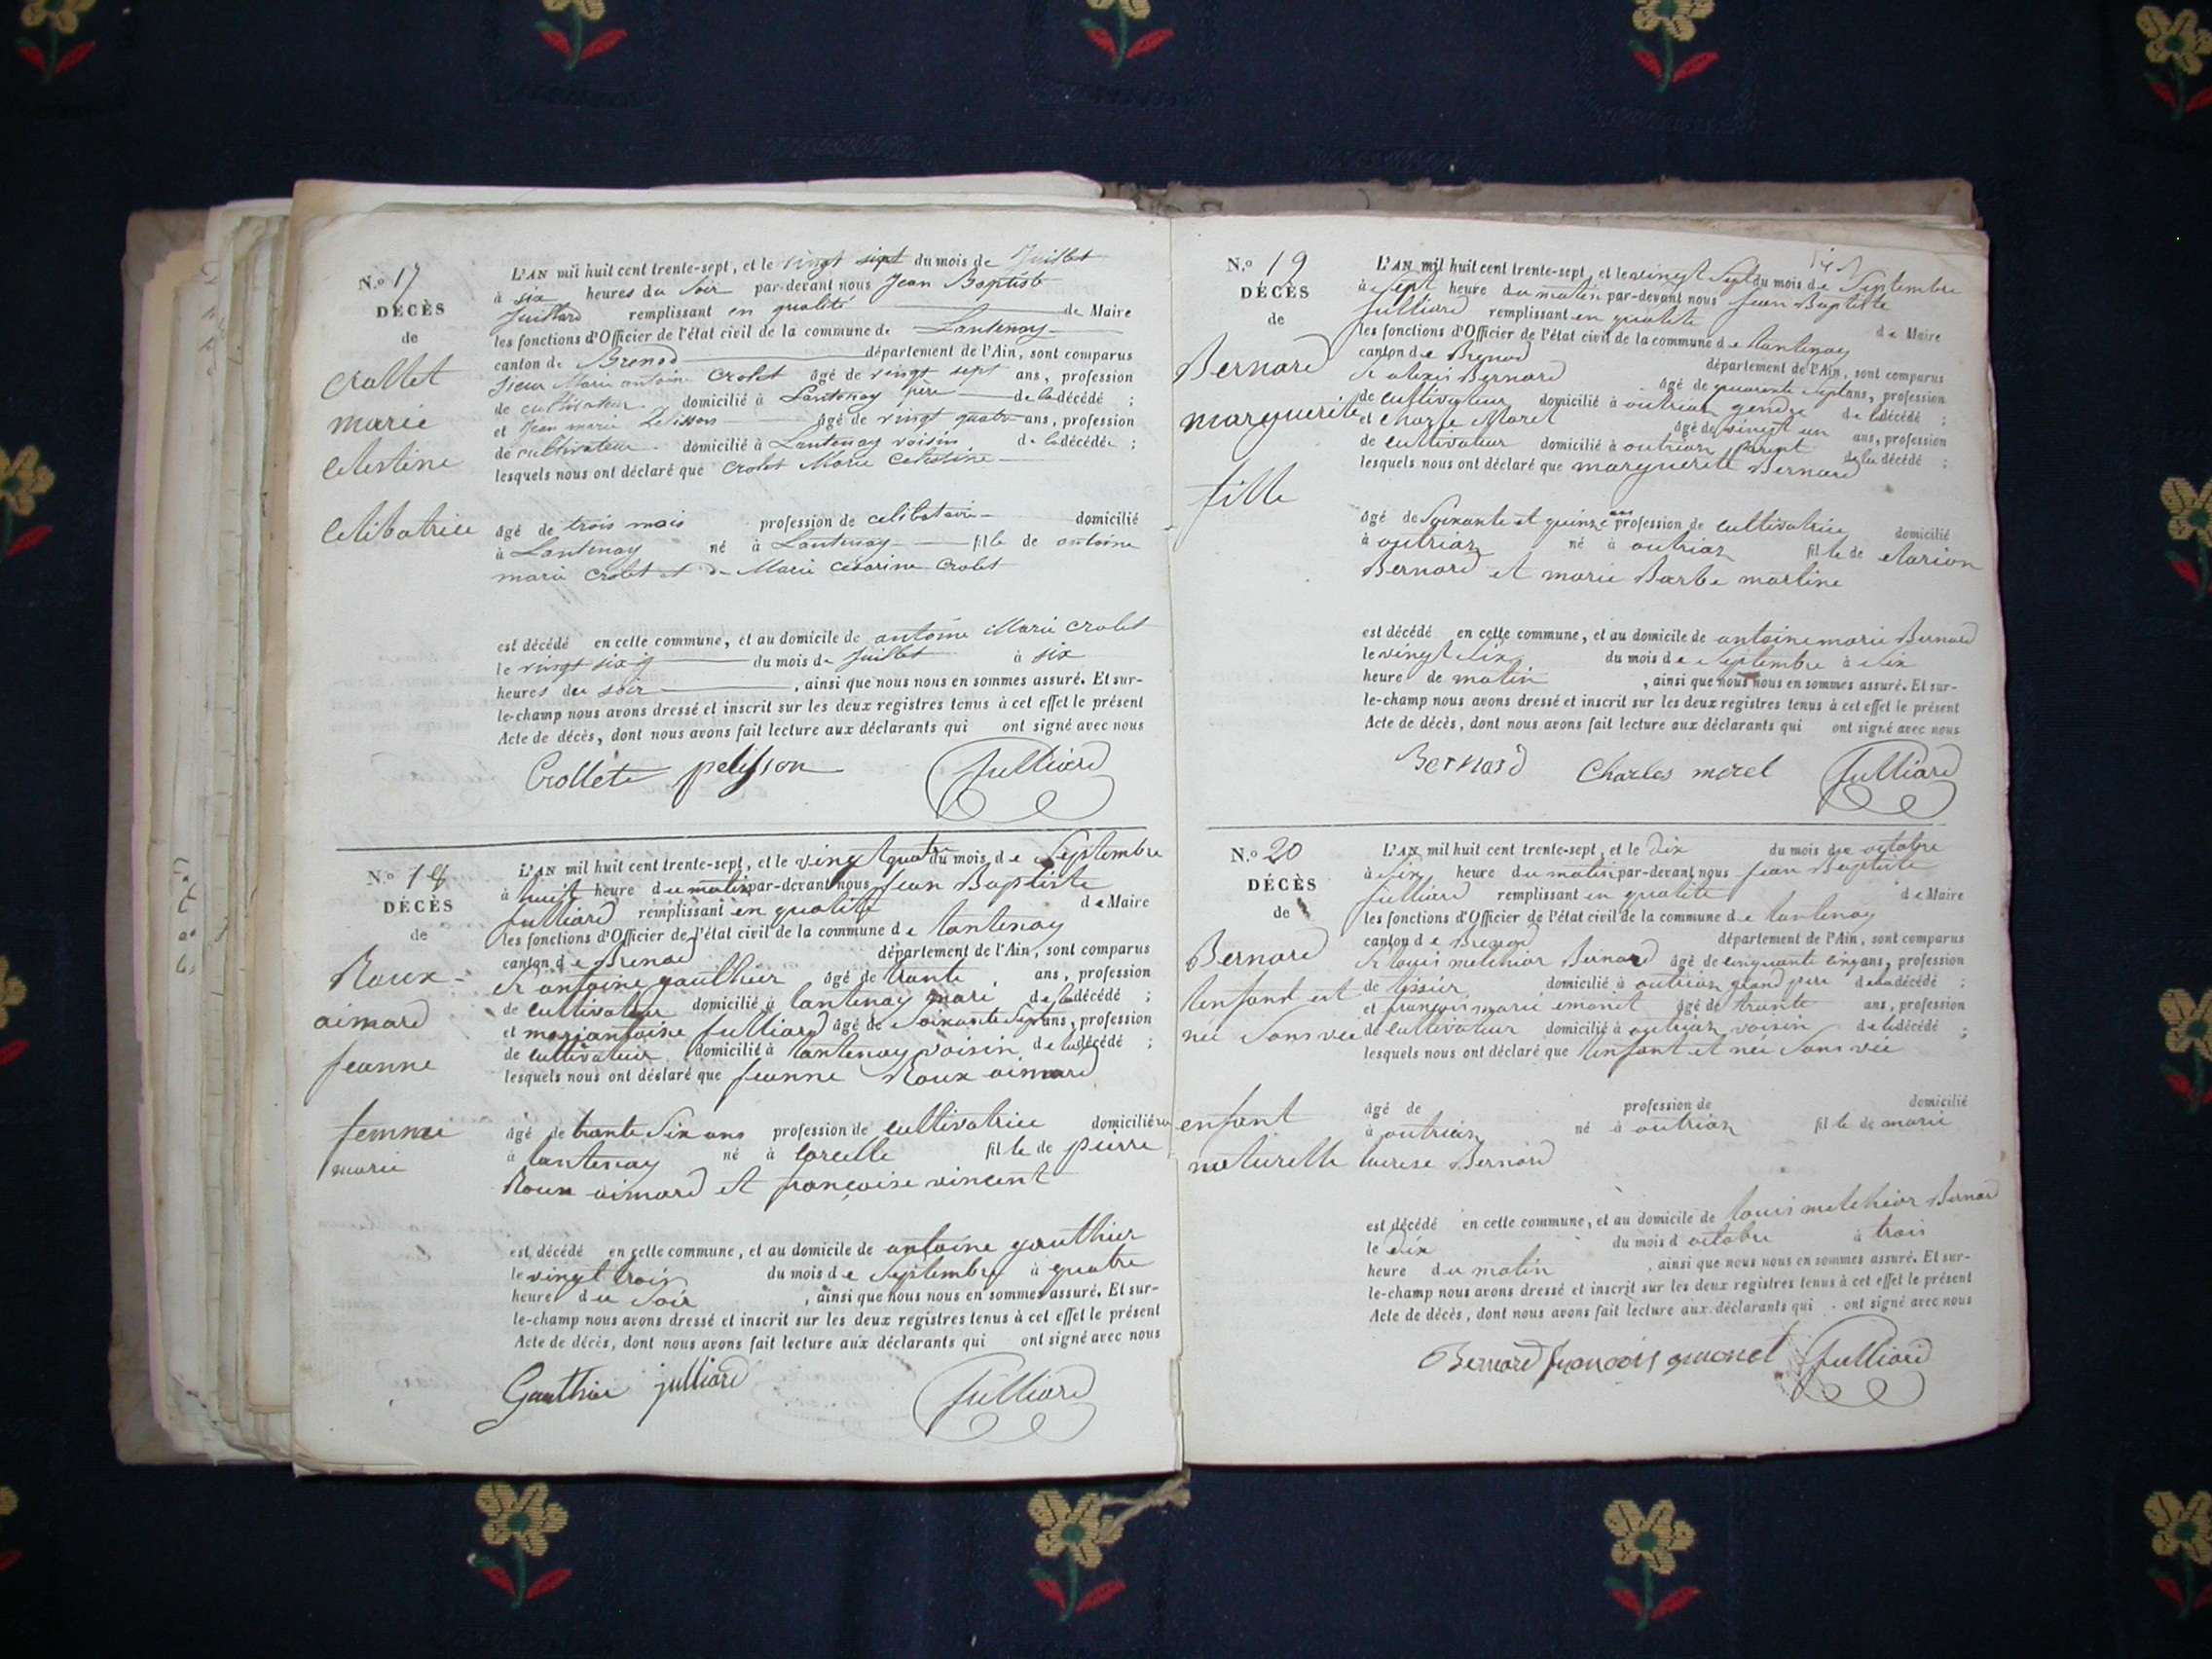 N.o 17
DÉCÈS
de
Crollet
marie
celestine
celibatrice
L'AN mil huit cent trente-sept, et le vingt sept du mois de Juillet
à six heures du Soir par-devant nous Jean Baptiste
Juilliard remplissant en qualité de Maire
les fonctions d'Officier de l'état civil de la commune de Lantenay
canton de Brenod département de l'Ain, sont comparus
Sieur Marie antoine Crolet âgé de vingt sept ans, profession
de cultivateur domicilié à Lantenay père de la décédé ;
et Jean marie Pelisson âgé de vingt quatre ans, profession
de cultivateur domicilié à Lantenay voisin de la décédée ;
lesquels nous ont déclaré que Crolet Marie Celestine
âgé de trois mois profession de celibataire domicilié
à Lantenay né à Lantenay fille de antoine
marie Crolet et de Marie césarine Crolet
est décédé en cette commune, et au domicile de antoine Marie Crolet
le vingt six du mois de Juillet à six
heures du soir , ainsi que nous nous en sommes assuré. Et sur-
le-champ nous avons dressé et inscrit sur les deux registres tenus à cet effet le présent
Acte de décès, dont nous avons fait lecture aux déclarants qui ont signé avec nous
Crollet pelisson Julliard
N.o 18
DÉCÈS
de
Roux-
aimard
jeanne
femme
marie
L'AN mil huit cent trente-sept, et le vingt quatre du mois de Septembre
à huit heure du matin par-devant nous Jean Baptiste
Julliard remplissant en qualité de Maire
les fonctions d'Officier de l'état civil de la commune de lantenay
canton de Brenod département de l'Ain, sont comparus
Sr antoine gauthier âgé de trante ans, profession
de cultivateur domicilié à lantenay mari de la décédé ;
et marjantoine Julliard âgé de Soixante Sept ans, profession
de cultivateur domicilié à lantenay voisin de la décédé ;
lesquels nous ont déclaré que jeanne Roux aimard
âgé de trante Six ans profession de cultivatrice domicilié
à lantenay né à Corcelle fille de pierre
Roux aimard et françoise vincent
est décédé en cette commune, et au domicile de antoine gauthier
le vingt trois du mois de Septembre à quatre
heure du Soir , ainsi que nous nous en sommes assuré. Et sur-
le-champ nous avons dressé et inscrit sur les deux registres tenus à cet effet le présent
Acte de décès, dont nous avons fait lecture aux déclarants qui ont signé avec nous
Gauthier julliard Julliard
N.o 19
DÉCÈS
de
Bernard
marguerite
fille
L'AN mil huit cent trente-sept, et le vingt Sept du mois de Septembre
à Sept heure du matin par-devant nous Jean Baptiste
Julliard remplissant en qualité de Maire
les fonctions d'Officier de l'état civil de la commune de lantenay
canton de Brenod département de l'Ain, sont comparus
Sr alexis Bernard âgé de quarante Sept ans, profession
de cultivateur domicilié à outriaz gendre de la décédé ;
et Charle Morel âgé de vingt un ans, profession
de cultivateur domicilié à outriaz parent de la décédé ;
lesquels nous ont déclaré que marguerite Bernard
âgé de Soixante et quinze ans profession de cultivatrice domicilié
à outriaz né à outriaz fille de clarion
Bernard et marie Barbe martine
est décédé en cette commune, et au domicile de antoine marie Bernard
le vingt Six du mois de Septembre à Six
heure de matin , ainsi que nous nous en sommes assuré. Et sur-
le-champ nous avons dressé et inscrit sur les deux registres tenus à cet effet le présent
Acte de décès, dont nous avons fait lecture aux déclarants qui ont signé avec nous
Bernard Charles morel Julliard
N.o 20
DÉCÈS
de
Bernard
lenfant est
née Sans vie
enfant
naturelle
L'AN mil huit cent trente-sept, et le dix du mois de octobre
à Six heure du matin par-devant nous Jean Baptiste
Julliard remplissant en qualité de Maire
les fonctions d'Officier de l'état civil de la commune de lantenay
canton de Brenod département de l'Ain, sont comparus
Sr louis melchior Bernard âgé de cinquante cinq ans, profession
de tissier domicilié à outriaz grand pere de la décédé ;
et françois marie emonet âgé de trante ans, profession
de cultivateur domicilié à outriaz voisin de la décédé ;
lesquels nous ont déclaré que lenfant et née Sans vie
âgé de profession de domicilié
à outriaz né à outriaz fille de marie
therese Bernard
est décédé en cette commune, et au domicile de louis melchior Bernard
le dix du mois d octobre à trois
heure du matin , ainsi que nous nous en sommes assuré. Et sur-
le-champ nous avons dressé et inscrit sur les deux registres tenus à cet effet le présent
Acte de décès, dont nous avons fait lecture aux déclarants qui ont signé avec nous
Bernard françois Julliard